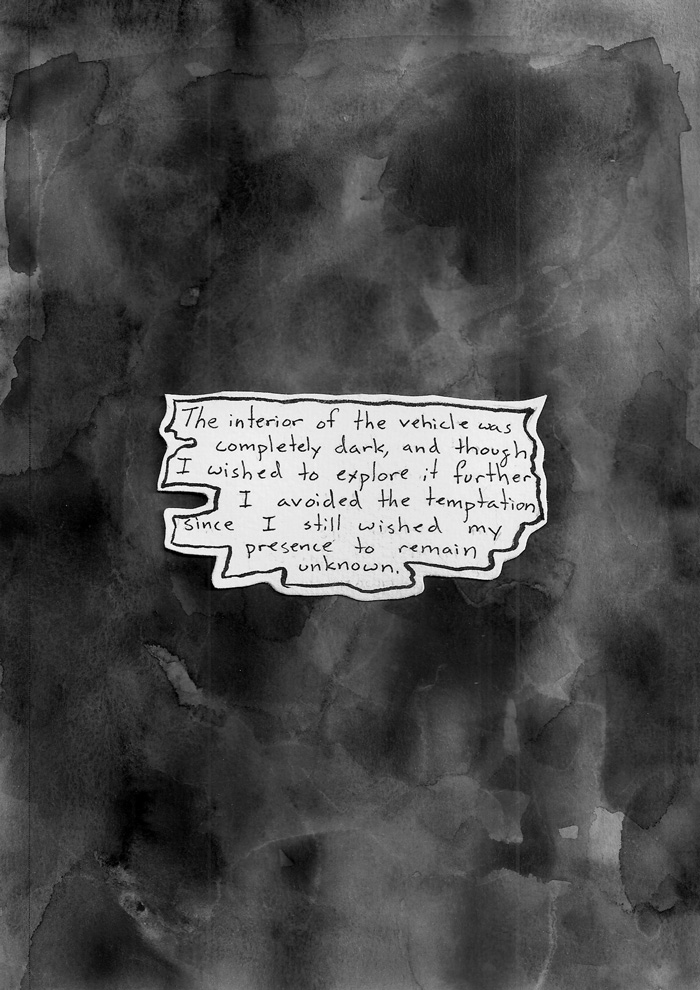 The interior of the vehicle was
completely dark, and though
I wished to explore it further
I avoided the temptation
since I still wished my
presence to remain
unknown.